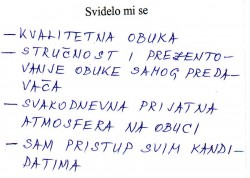 Svidelo mi se
– KVALITETNA OBUKA
– STRUČNOST I PREZENTO-
VANJE OBUKE SAMOG PREDA-
VAČA
– SVAKODNEVNA PRIJATNA
ATMOSFERA NA OBUCI
– SAM PRISTUP SVIM KANDI-
DATIMA